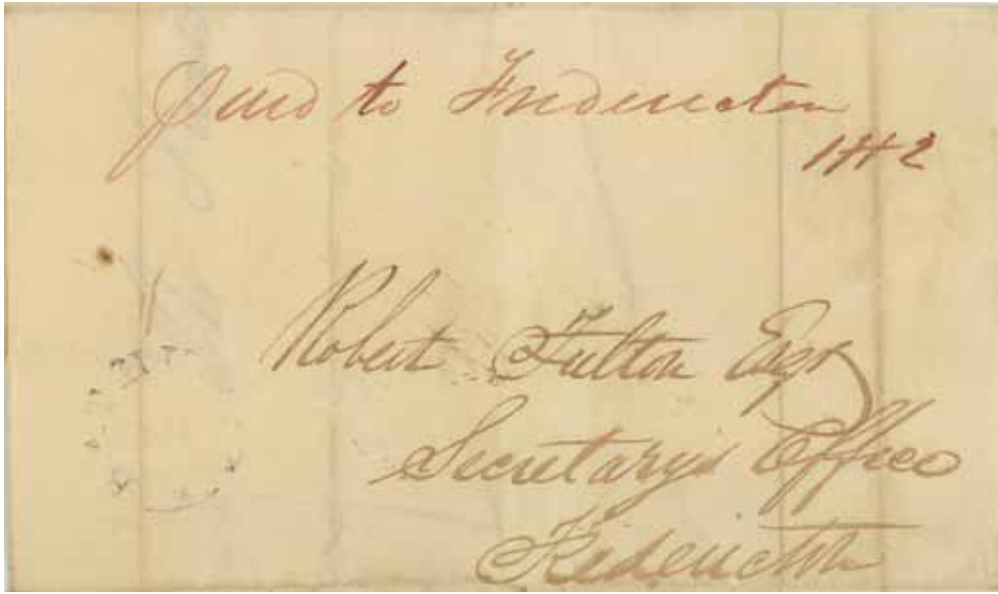 Paid to Fredericton
Robert Fulton Esqr
Secretary's Office
Fredericton